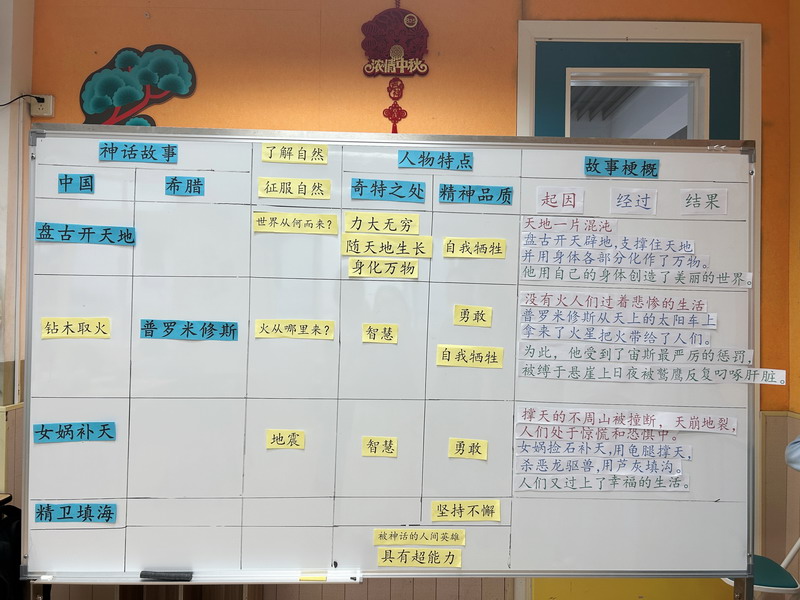 浓情中秋
神话故事
了解自然
人物特点
故事梗概
中国
希腊
征服自然
奇特之处
精神品质
起因
经过
结果
盘古开天地
世界从何而来?
力大无穷
随天地生长
身化万物
自我牺牲
天地一片混沌
盘古开天辟地,支撑住天地
并用身体各部分化作了万物。
他用自己的身体创造了美丽的世界。
钻木取火
普罗米修斯
火从哪里来?
智慧
勇敢
自我牺牲
没有火人们过着悲惨的生活
普罗米修斯从天上的太阳车上
拿来了火星把火带给了人们。
为此,他受到了宙斯最严厉的惩罚,
被缚于悬崖上日夜被鹫鹰反复叼啄肝脏。
女娲补天
地震
智慧
勇敢
撑天的不周山被撞断,天崩地裂,
人们处于惊慌和恐惧中。
女娲捡石补天,用龟腿撑天,
杀恶龙驱兽,用芦灰填沟。
人们又过上了幸福的生活。
精卫填海
坚持不懈
被神话的人间英雄
具有超能力